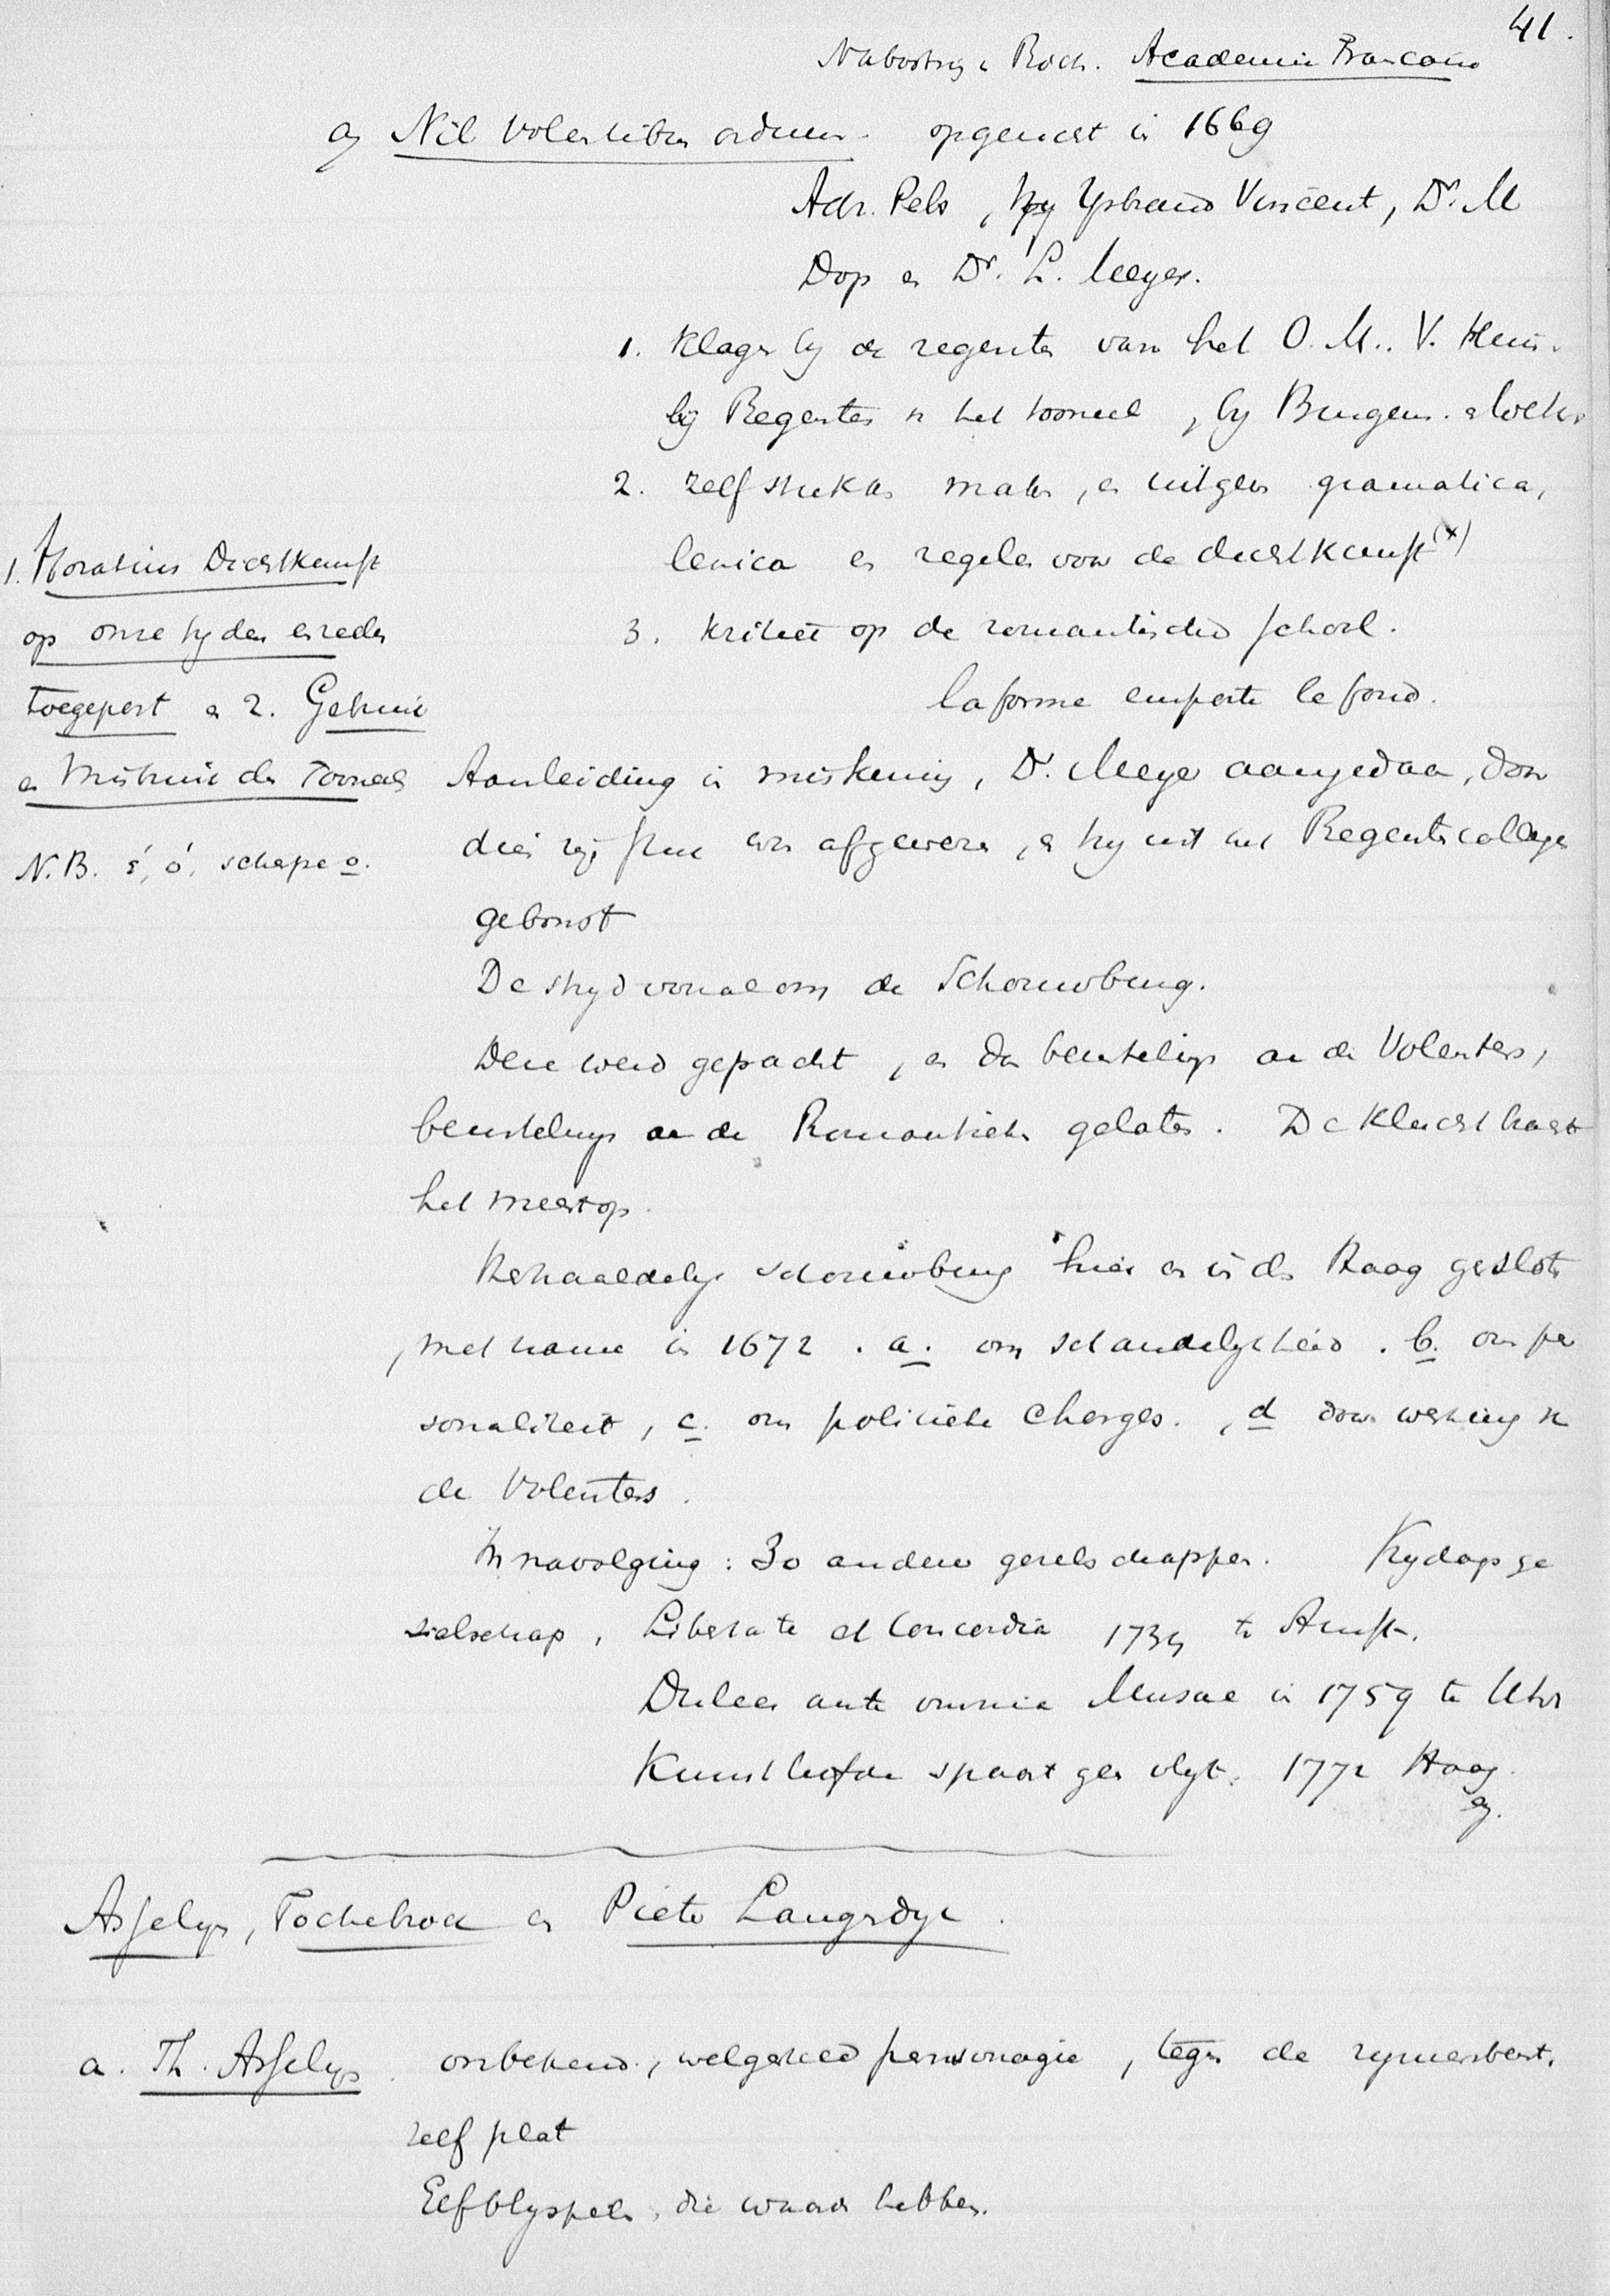 41.
Nabootsing v. Rich. Academie Francaise
a) Nil Volentibus arduum. opgericht in 1669
Adr. Pels, hij Ysbrand Vincent, Dr. M
Dop en Dr. L. Meyer.
1. Klagen bij de regenten van het O. M. V. Huis.
bij Regenten v het tooneel, bij Burgem.
2. zelf stukken maken, en uitgeven gramatica,
lexica en regelen voor de dichtkunst (x)
1. Horatius Dichtkunst
op onze tijden en zeden
toegepast en 2. Gebruik
en Misbruik des Tooneels
N.B. é, ó, scherpe o.
3. kritiek op de romantische school.
la forme emporte le fond.
Aanleiding is miskenning, Dr. Meyer aangedaan, door
dien zijn stuk werd afgewezen, en hij uit het Regentscollege
gebonst
De strijd vooral om de Schouwburg.
Deze werd gepacht, en dan beurtelings aan de Volenters,
beurtelings aan de Romantieken gelaten. De klucht haalt
het meest op.
Herhaaldelijk schouwburg hier en in den Haag gesloten
, met name in 1672. a. om schandelijkheid. b. om per
sonaliteit, c. om politieke charges., d door werking v
de Volenters.
In navolging: 30 andere genelschappen. Tijdaps ge
zielschap, Libertate et Concordia 1739 te Amst.
Dulces ante omnia Musae in 1759 te Utr
Kunstliefde spaart geen vlijt. 1772 Haag
Asselyn, Fochebrock en Pieter Langendyk.
a. Th. Asselyn. onbekend, welgesteld personagie, tegen de rymersbent.
zelf plat
Elf blyspelen, die waarde hebben.